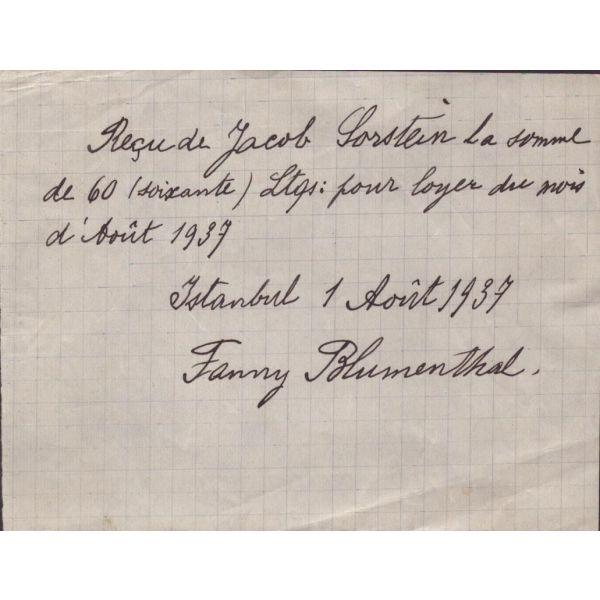 Reçu de Jacob Sorstein la somme
de 60 (soixante) Ltqs: pour loyer du mois
d'Août 1937
Istanbul 1 Août 1937
Fanny Blumenthal.